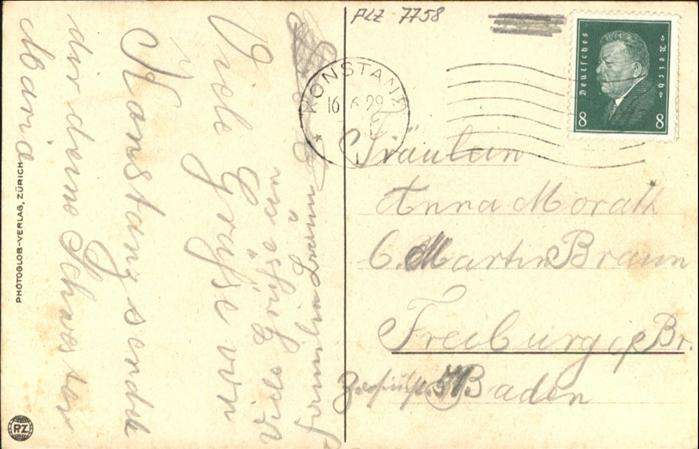 PLZ 7758
KONSTANZ
16.6.29
Deutsches Reich
8 8
Fräulein
Anna Morath
b. Martin Braun
Freiburg i/Br.
Baden
Viele Grüße von
Konstanz sendet
dir deine Schwester
Maria
viele Grüße an
Familie Braun
PHOTOGLOB-VERLAG, ZÜRICH
PZ